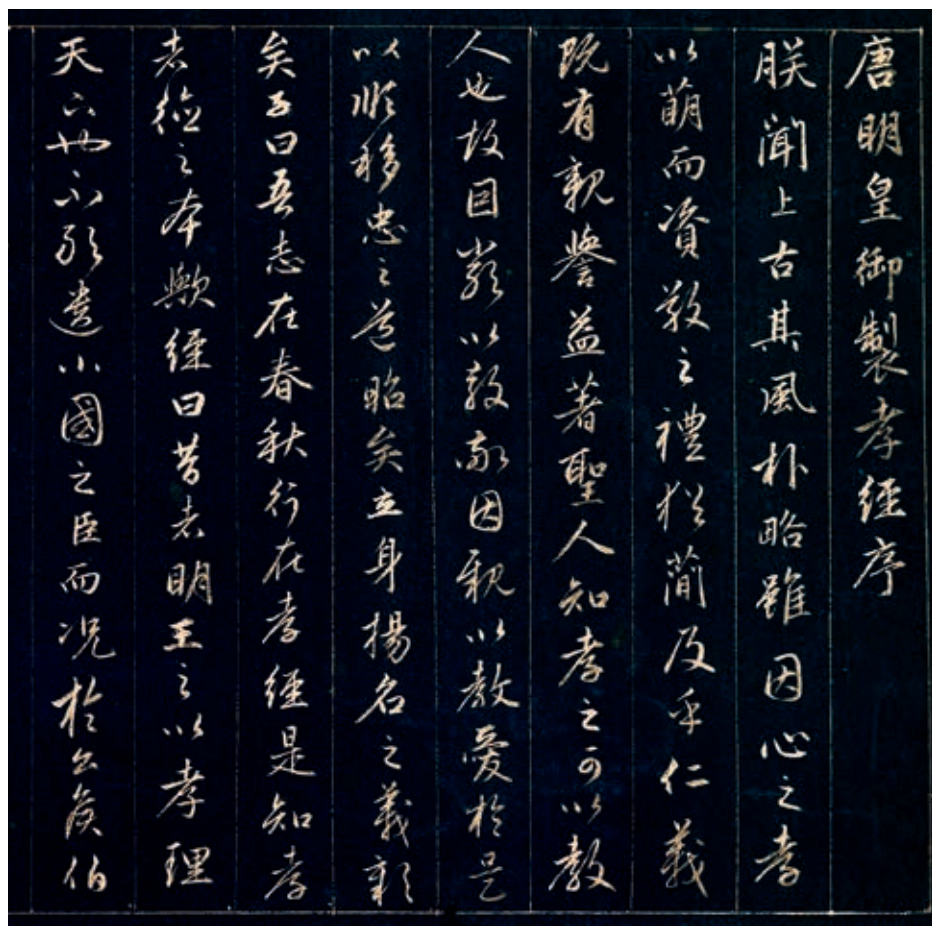 唐明皇御製孝經序
朕聞上古其風朴略雖因心之孝
以萌而資敬之禮猶簡及乎仁義
既有親譽益著聖人知孝之可以教
人也故因嚴以教敬因親以教愛於是
以順移忠之道昭矣立身揚名之義彰
矣子曰吾志在春秋行在孝經是知孝
者德之本歟經曰昔者明王之以孝理
天下也不敢遺小國之臣而況於公侯伯